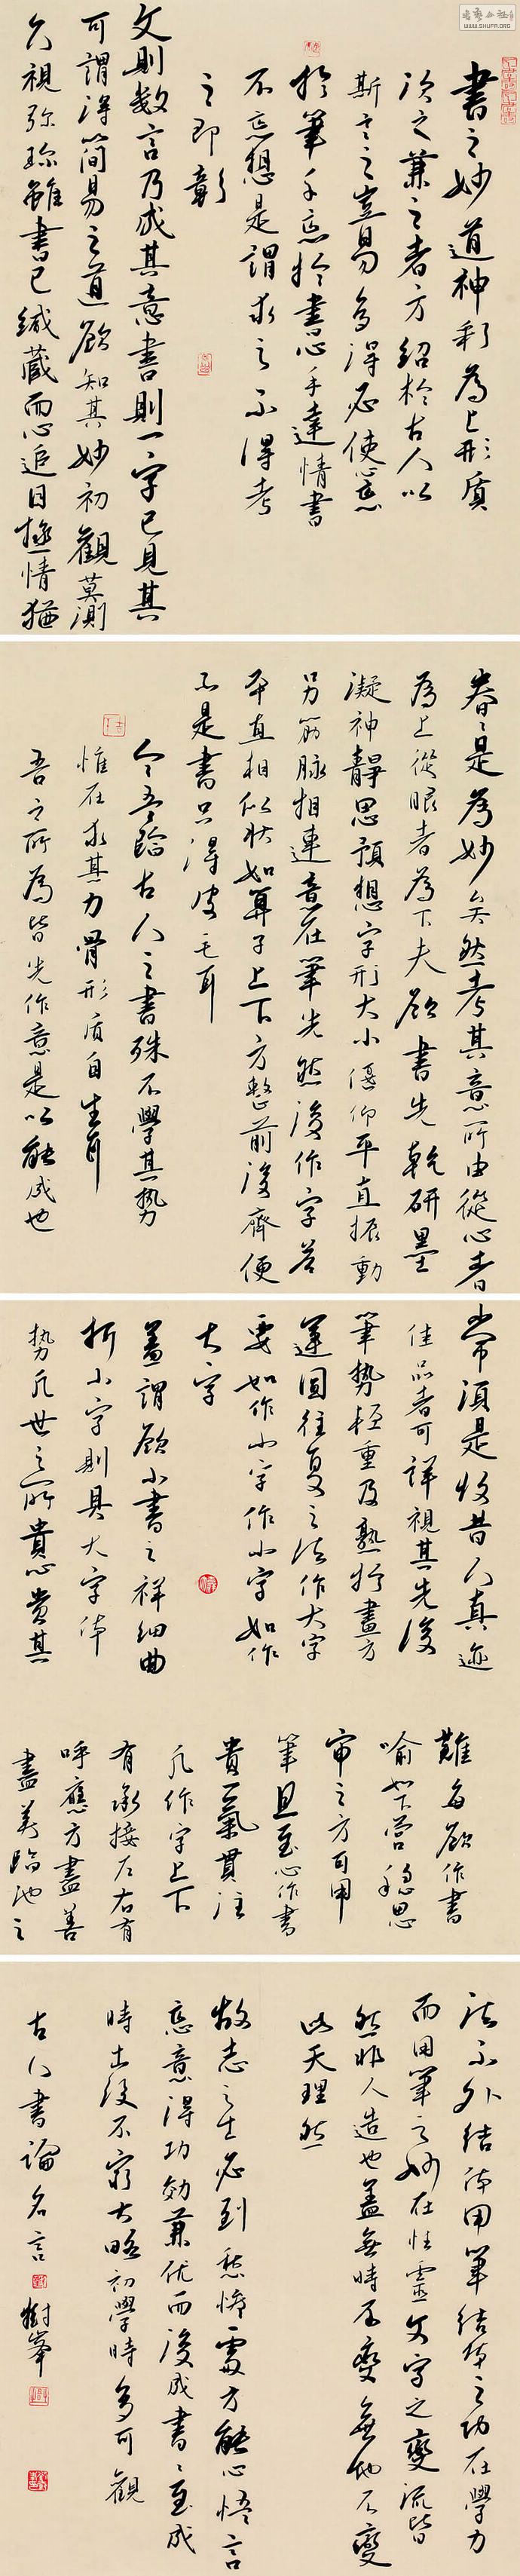 書之妙道神彩為上形質
次之兼之者方紹於古人以
斯言之豈易多得必使心忘
於筆手忘於書心手達情書
不忘想是謂求之不得考
之即彰
文則數言乃成其意書則一字已見其
可謂得簡易之道欲知其妙初觀莫測
久視弥珍雖書已緘藏而心追目極情猶
眷々是為妙矣然考其意所由從心者
為上從眼者為下夫欲書先乾研墨
凝神靜思預想字形大小偃仰平直振動
另筋脉相連意在筆先然後作字若
平直相似狀如算子上下方整前後齊便
不是書只得皮毛耳
今吾臨古人之書殊不學其勢
惟在求其力骨形質自生耳
吾之所為皆先作意是以能成也
常須是收昔人真迹
佳品者可詳視其先後
筆勢輕重及熟於畫方
運圓往复之法作大字
要如作小字作小字如作
大字
蓋謂欲小書之祥細曲
折小字則具大字体
勢凡世之所貴心貴其
難每欲作書
喻如下營穩思
審之方可用
筆且至心作書
貴一氣貫注
凡作字上下
有承接左右有
呼應方盡善
盡美臨池之
法不外結體用筆結体之功在學力
而用筆之妙在性靈文字之變流皆
然非人造也蓋無時不變無地不變
此天理然
故志之士必到愁慘處方能心悟言
忘意得功効兼优而後成書々至成
時出役不窮大略初學時多可觀
古人書論名言
樹峯
WWW.SHUFA.ORG